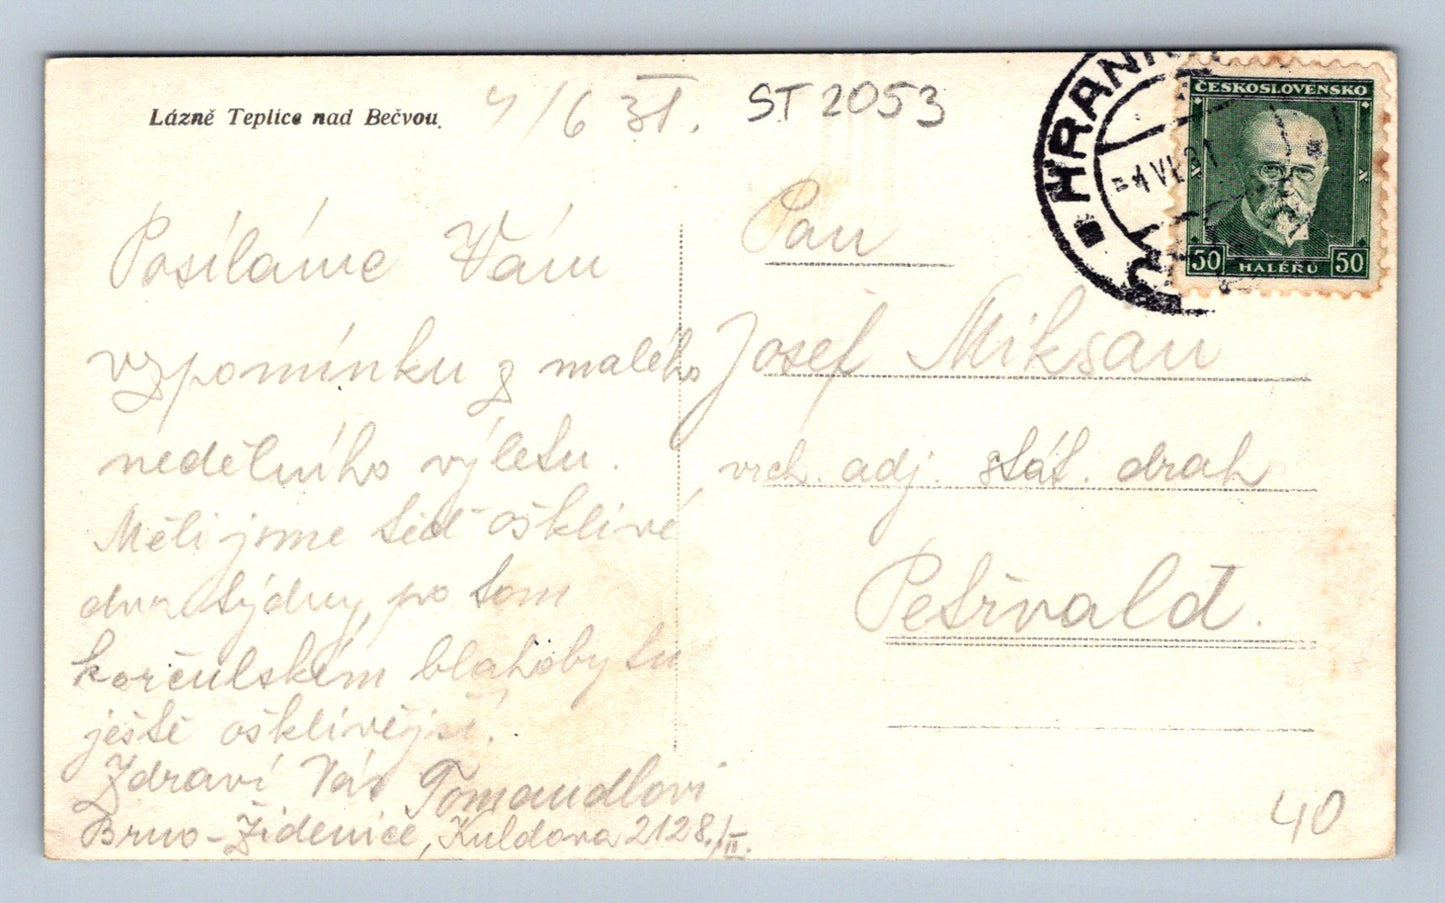 Lázně Teplice nad Bečvou.
4/6 31.
ST 2053
HRANI
4 VI 31
ČESKOSLOVENSKO
50 HALÉŘŮ 50
Posíláme Vám
vzpomínku z malého
nedělního výletu.
Měli jsme teď ošklivé
dva týdny, po tom
korčulském blahobytu
ještě ošklivější.
Zdraví Vás Tomandlovi
Brno-Židenice, Kuldova 2128./II.
Pan
Josef Mikšan
vrch. adj. stát. drah
Petřvald.
40